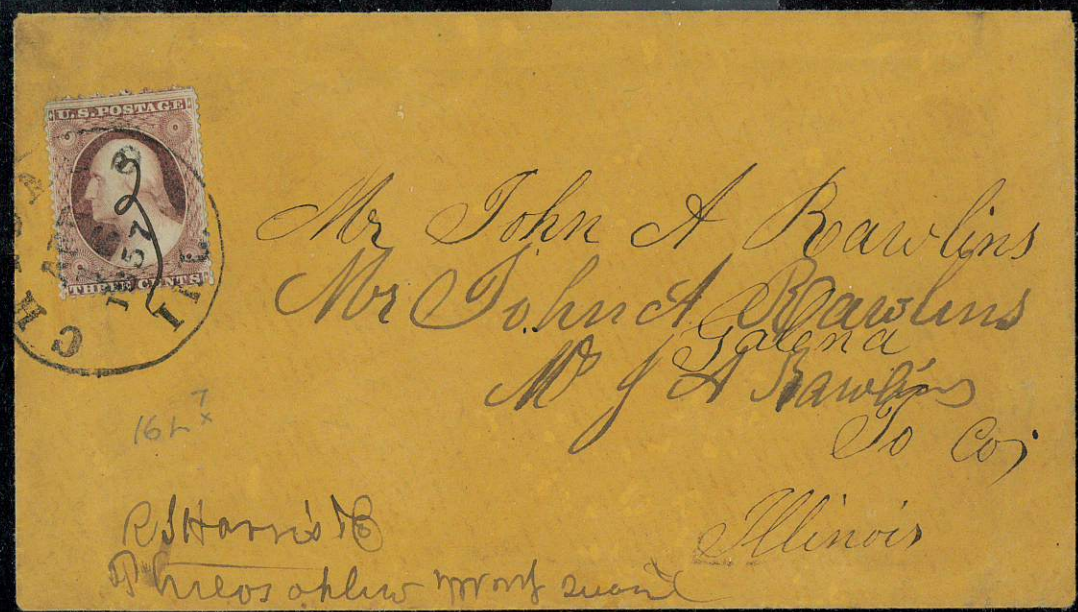 U.S. POSTAGE
THREE CENTS
1857
ILL
Mr John A Rawlins
Mr John A Rawlins
Galena
Mr J A Rawlins
Jo Co,
Illinois
R S Harris